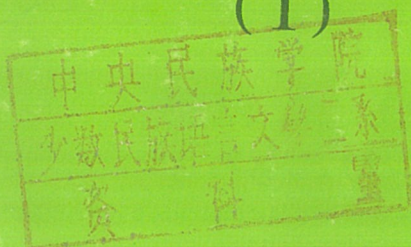 (1)
中央民族学院
少数民族语言文学三系
资料室